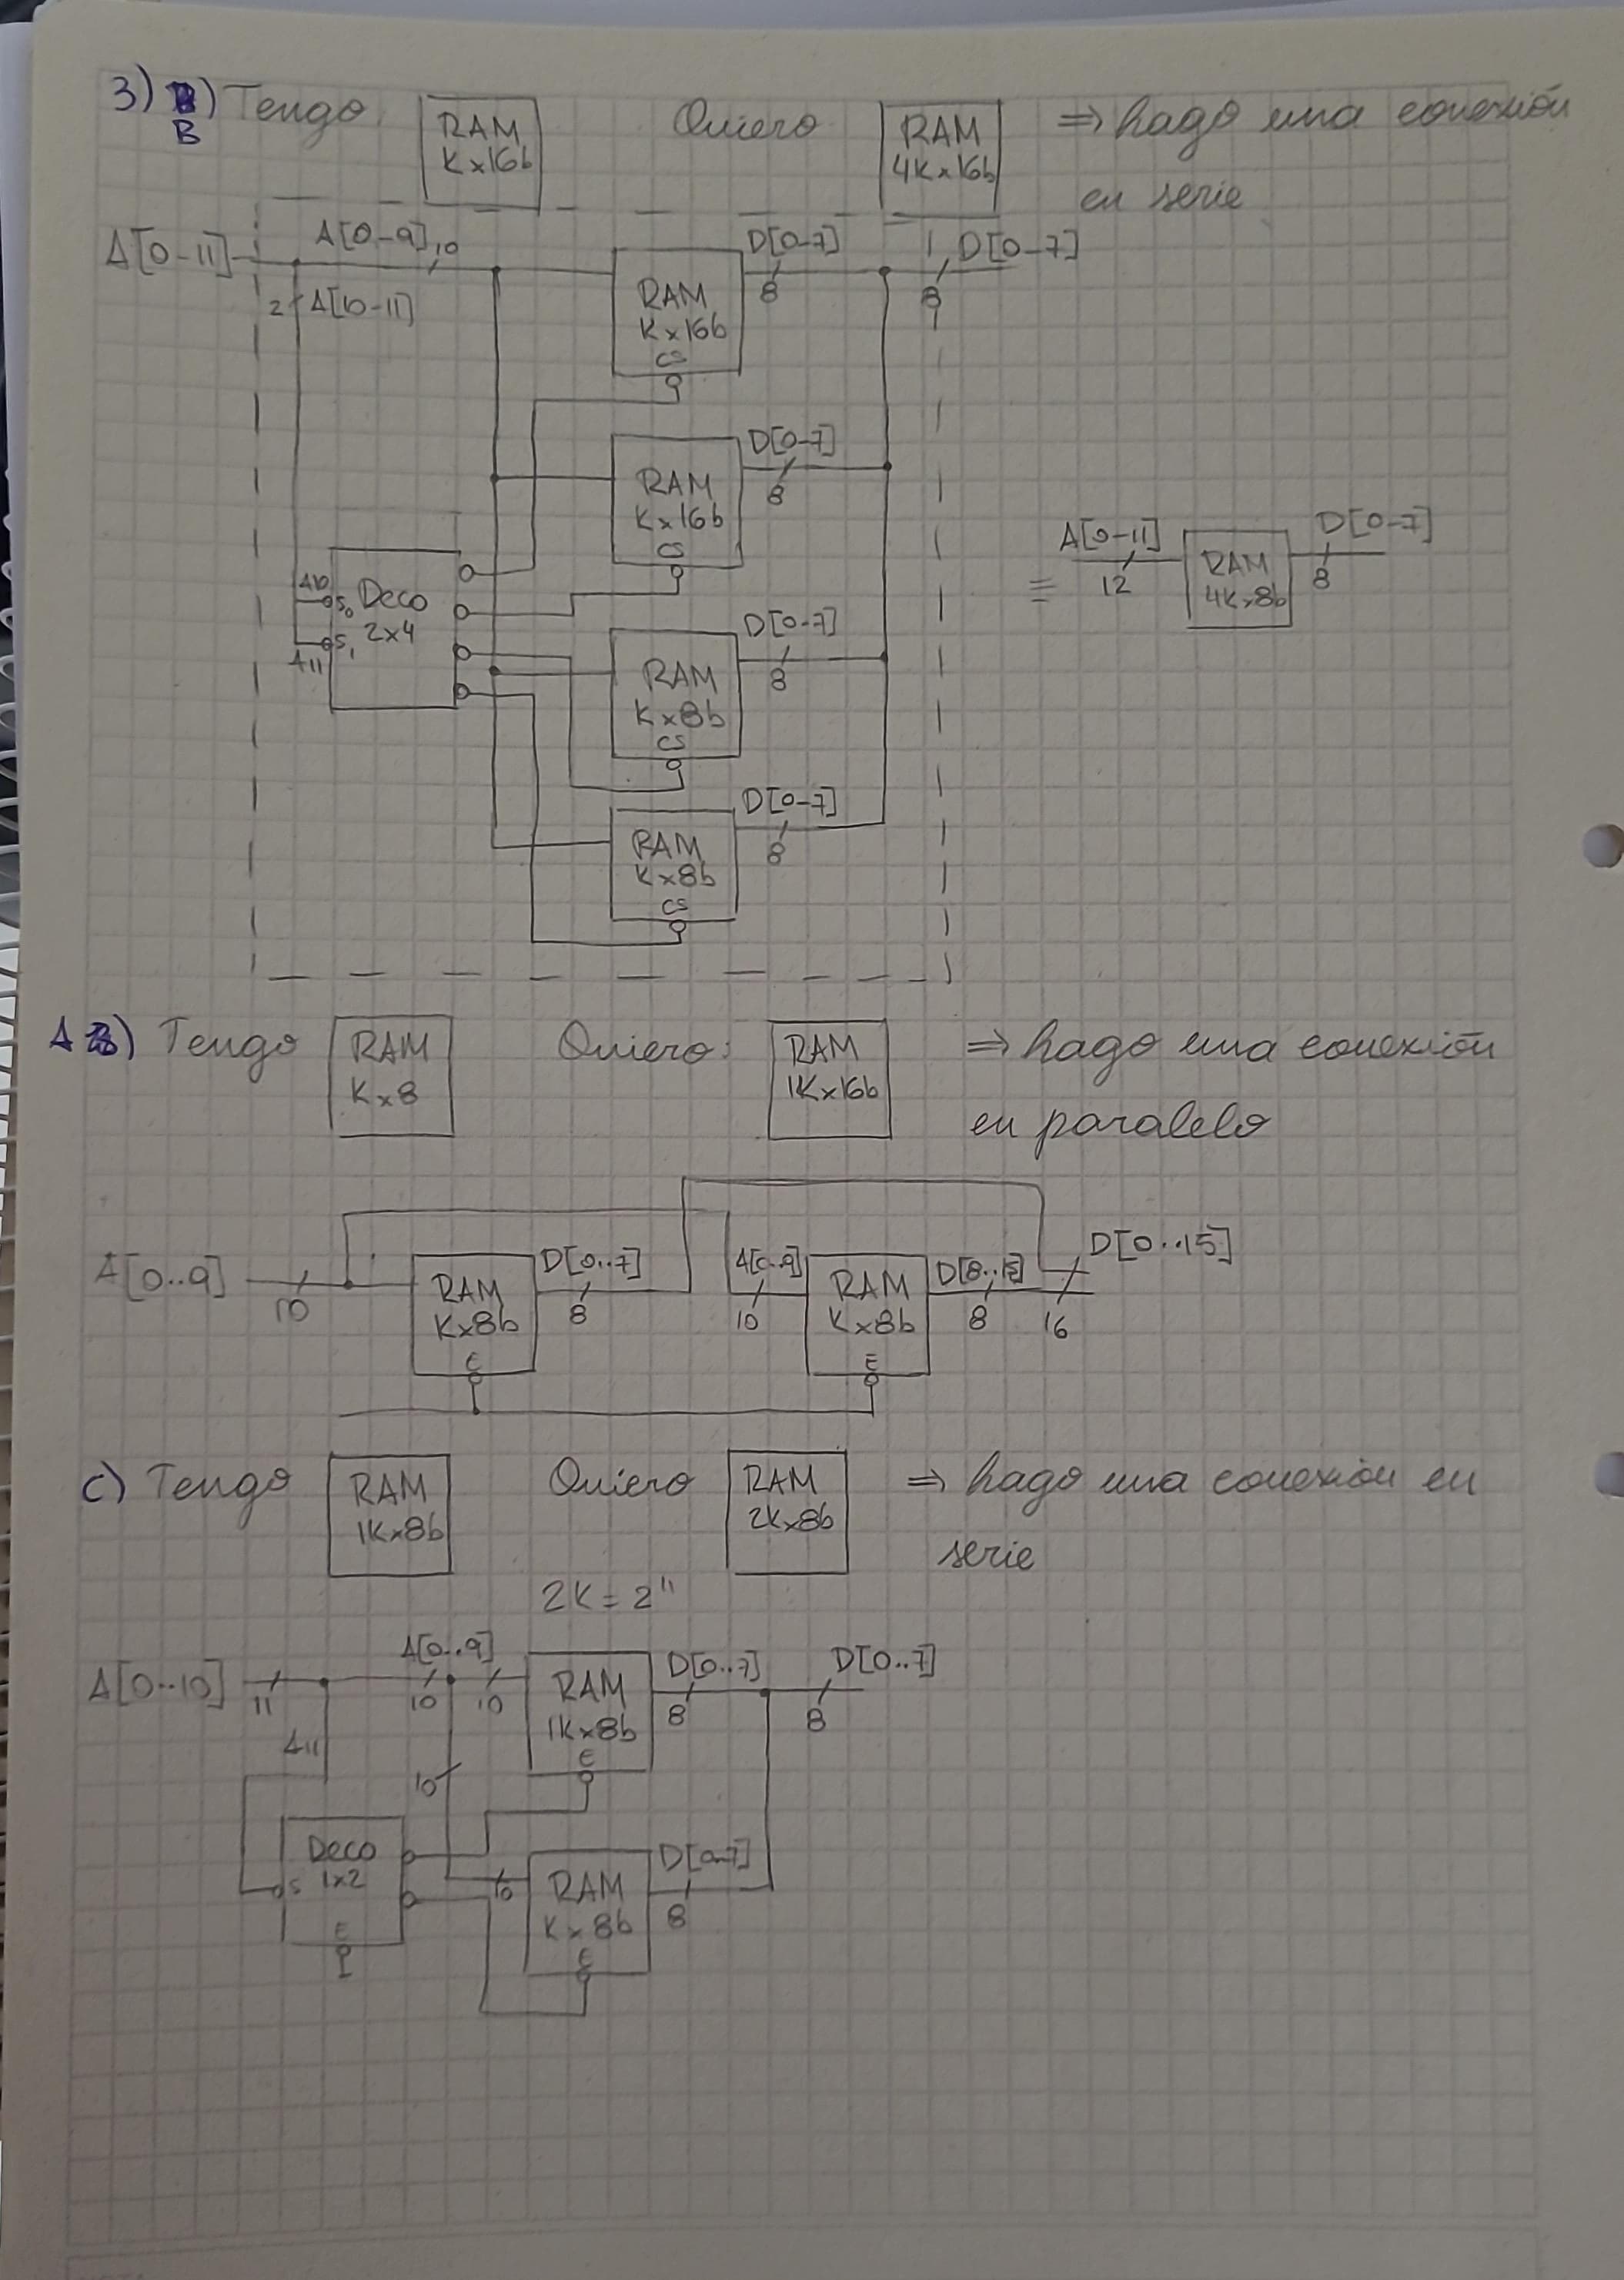 3) B) Tengo RAM Kx16b Quiero RAM 4Kx16b ⇒ hago una conexión
B
en serie
A[0-11] A[0-9] 10 RAM Kx16b CS D[0-7] 8 D[0-7] 8
2 A[10-11]
RAM Kx16b CS D[0-7] 8
A10 S0 Deco 2x4
A11 S1
≡ A[0-11] 12 RAM 4Kx8b D[0-7] 8
RAM Kx8b CS D[0-7] 8
RAM Kx8b CS D[0-7] 8
A) Tengo RAM Kx8 Quiero: RAM 1Kx16b ⇒ hago una conexión
en paralelo
A[0..9] 10 RAM Kx8b E D[0..7] 8 A[0..9] 10 RAM Kx8b E D[8..15] 8 16 D[0..15]
C) Tengo RAM 1Kx8b Quiero RAM 2Kx8b ⇒ hago una conexión en
serie
2K = 2¹¹
A[0..10] 11 A[0..9] 10 10 RAM 1Kx8b E D[0..7] 8 D[0..7] 8
A11
10
Deco 1x2 S E
10 RAM Kx8b E D[0-7] 8